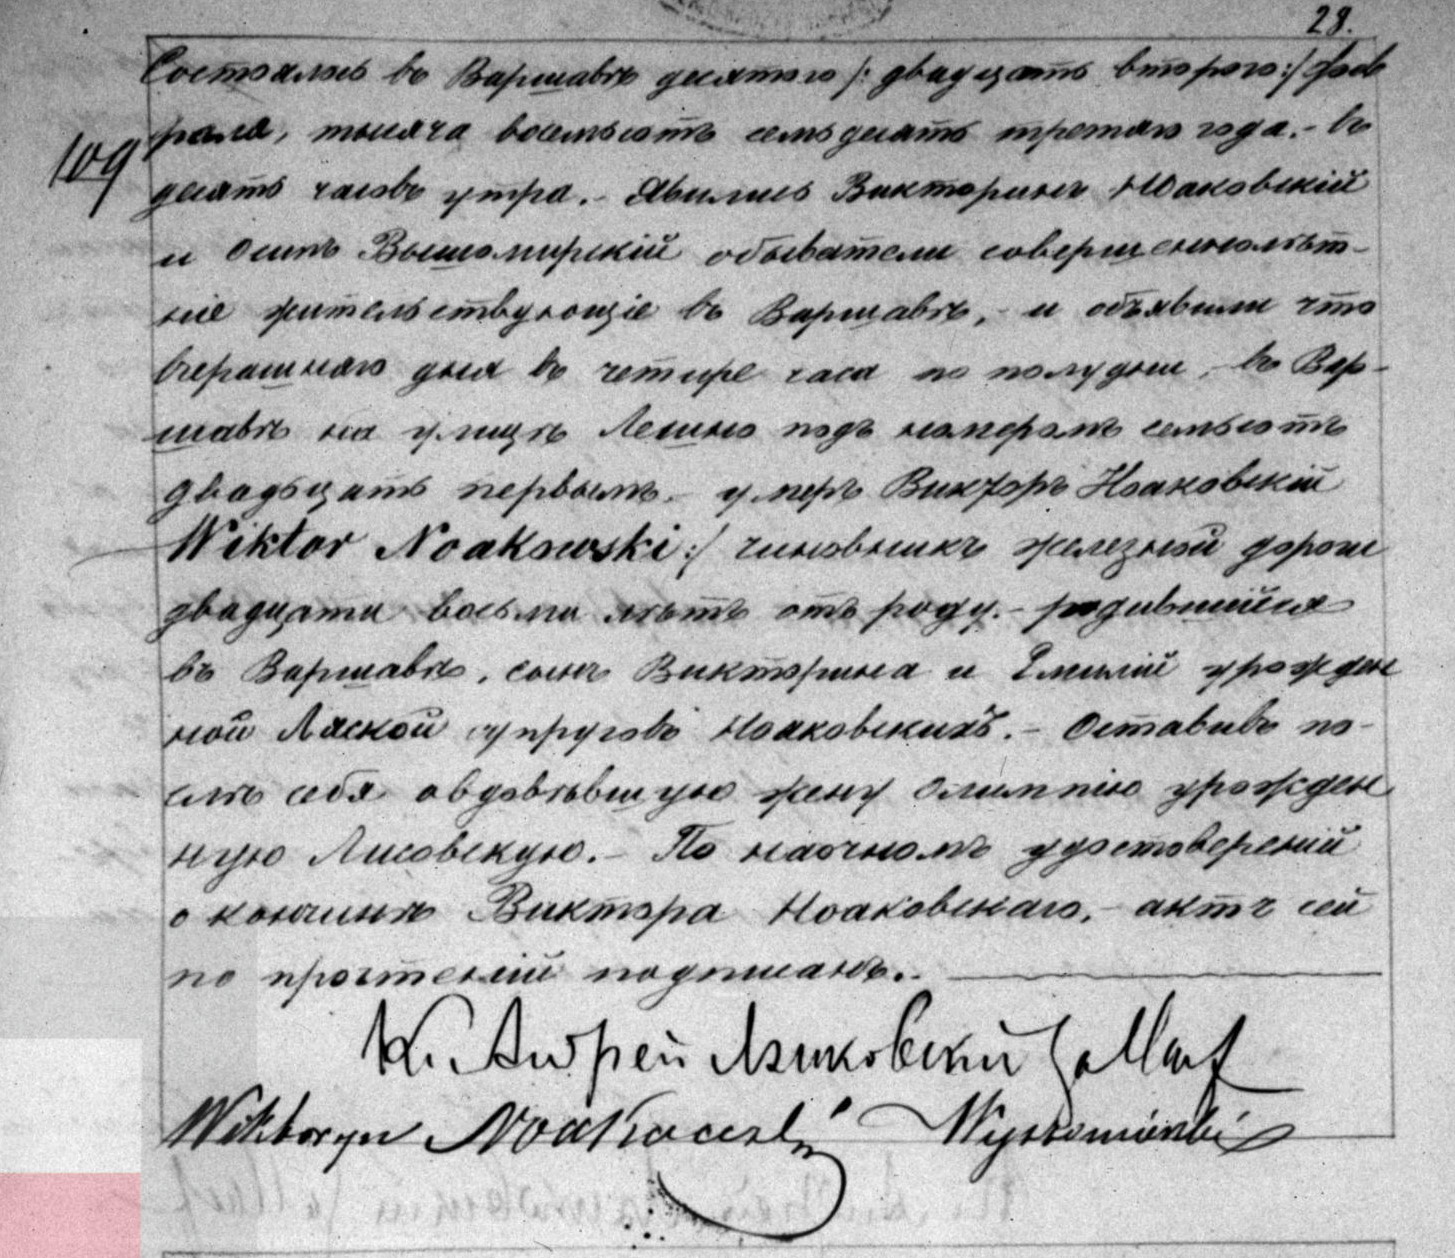 28.
Состоялось въ Варшавѣ десятого /: двадцать второго :/ Фев
109
раля, тысяча восемьсотъ семьдесятъ третяго года. – въ
десять часовъ утра. – Явились Викторинъ Ноаковскій
и Осипъ Вышомирскій обыватели совершеннолѣт-
ніе жительствующіе въ Варшавѣ, – и объявили что
вчерашняго дня въ четыре часа по полудни, – въ Вар-
шавѣ на улицѣ Лешно подъ номеромъ семьсотъ
двадцать первымъ. – умеръ Викторъ Ноаковскій
Wiktor Noakowski :/ чиновникъ железной дороги
двадцати восьми лѣтъ отъ роду. – родившийся
въ Варшавѣ, сынъ Викторина и Емилій урожден
ной Ляской супруговъ Ноаковскихъ. – Оставивъ по-
слѣ себя овдовѣвшую жену Олимпію урожден
ную Лисовскую. – По наочномъ удостовереній
о кончинѣ Виктора Ноаковскаго, – актъ сей
по прочтеній подписанъ. –
Кс. Андрей
Wiktoryn Noakowski Wyszomirski